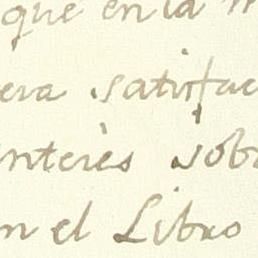 que en la
era satisfac
interès sob
en el Libro